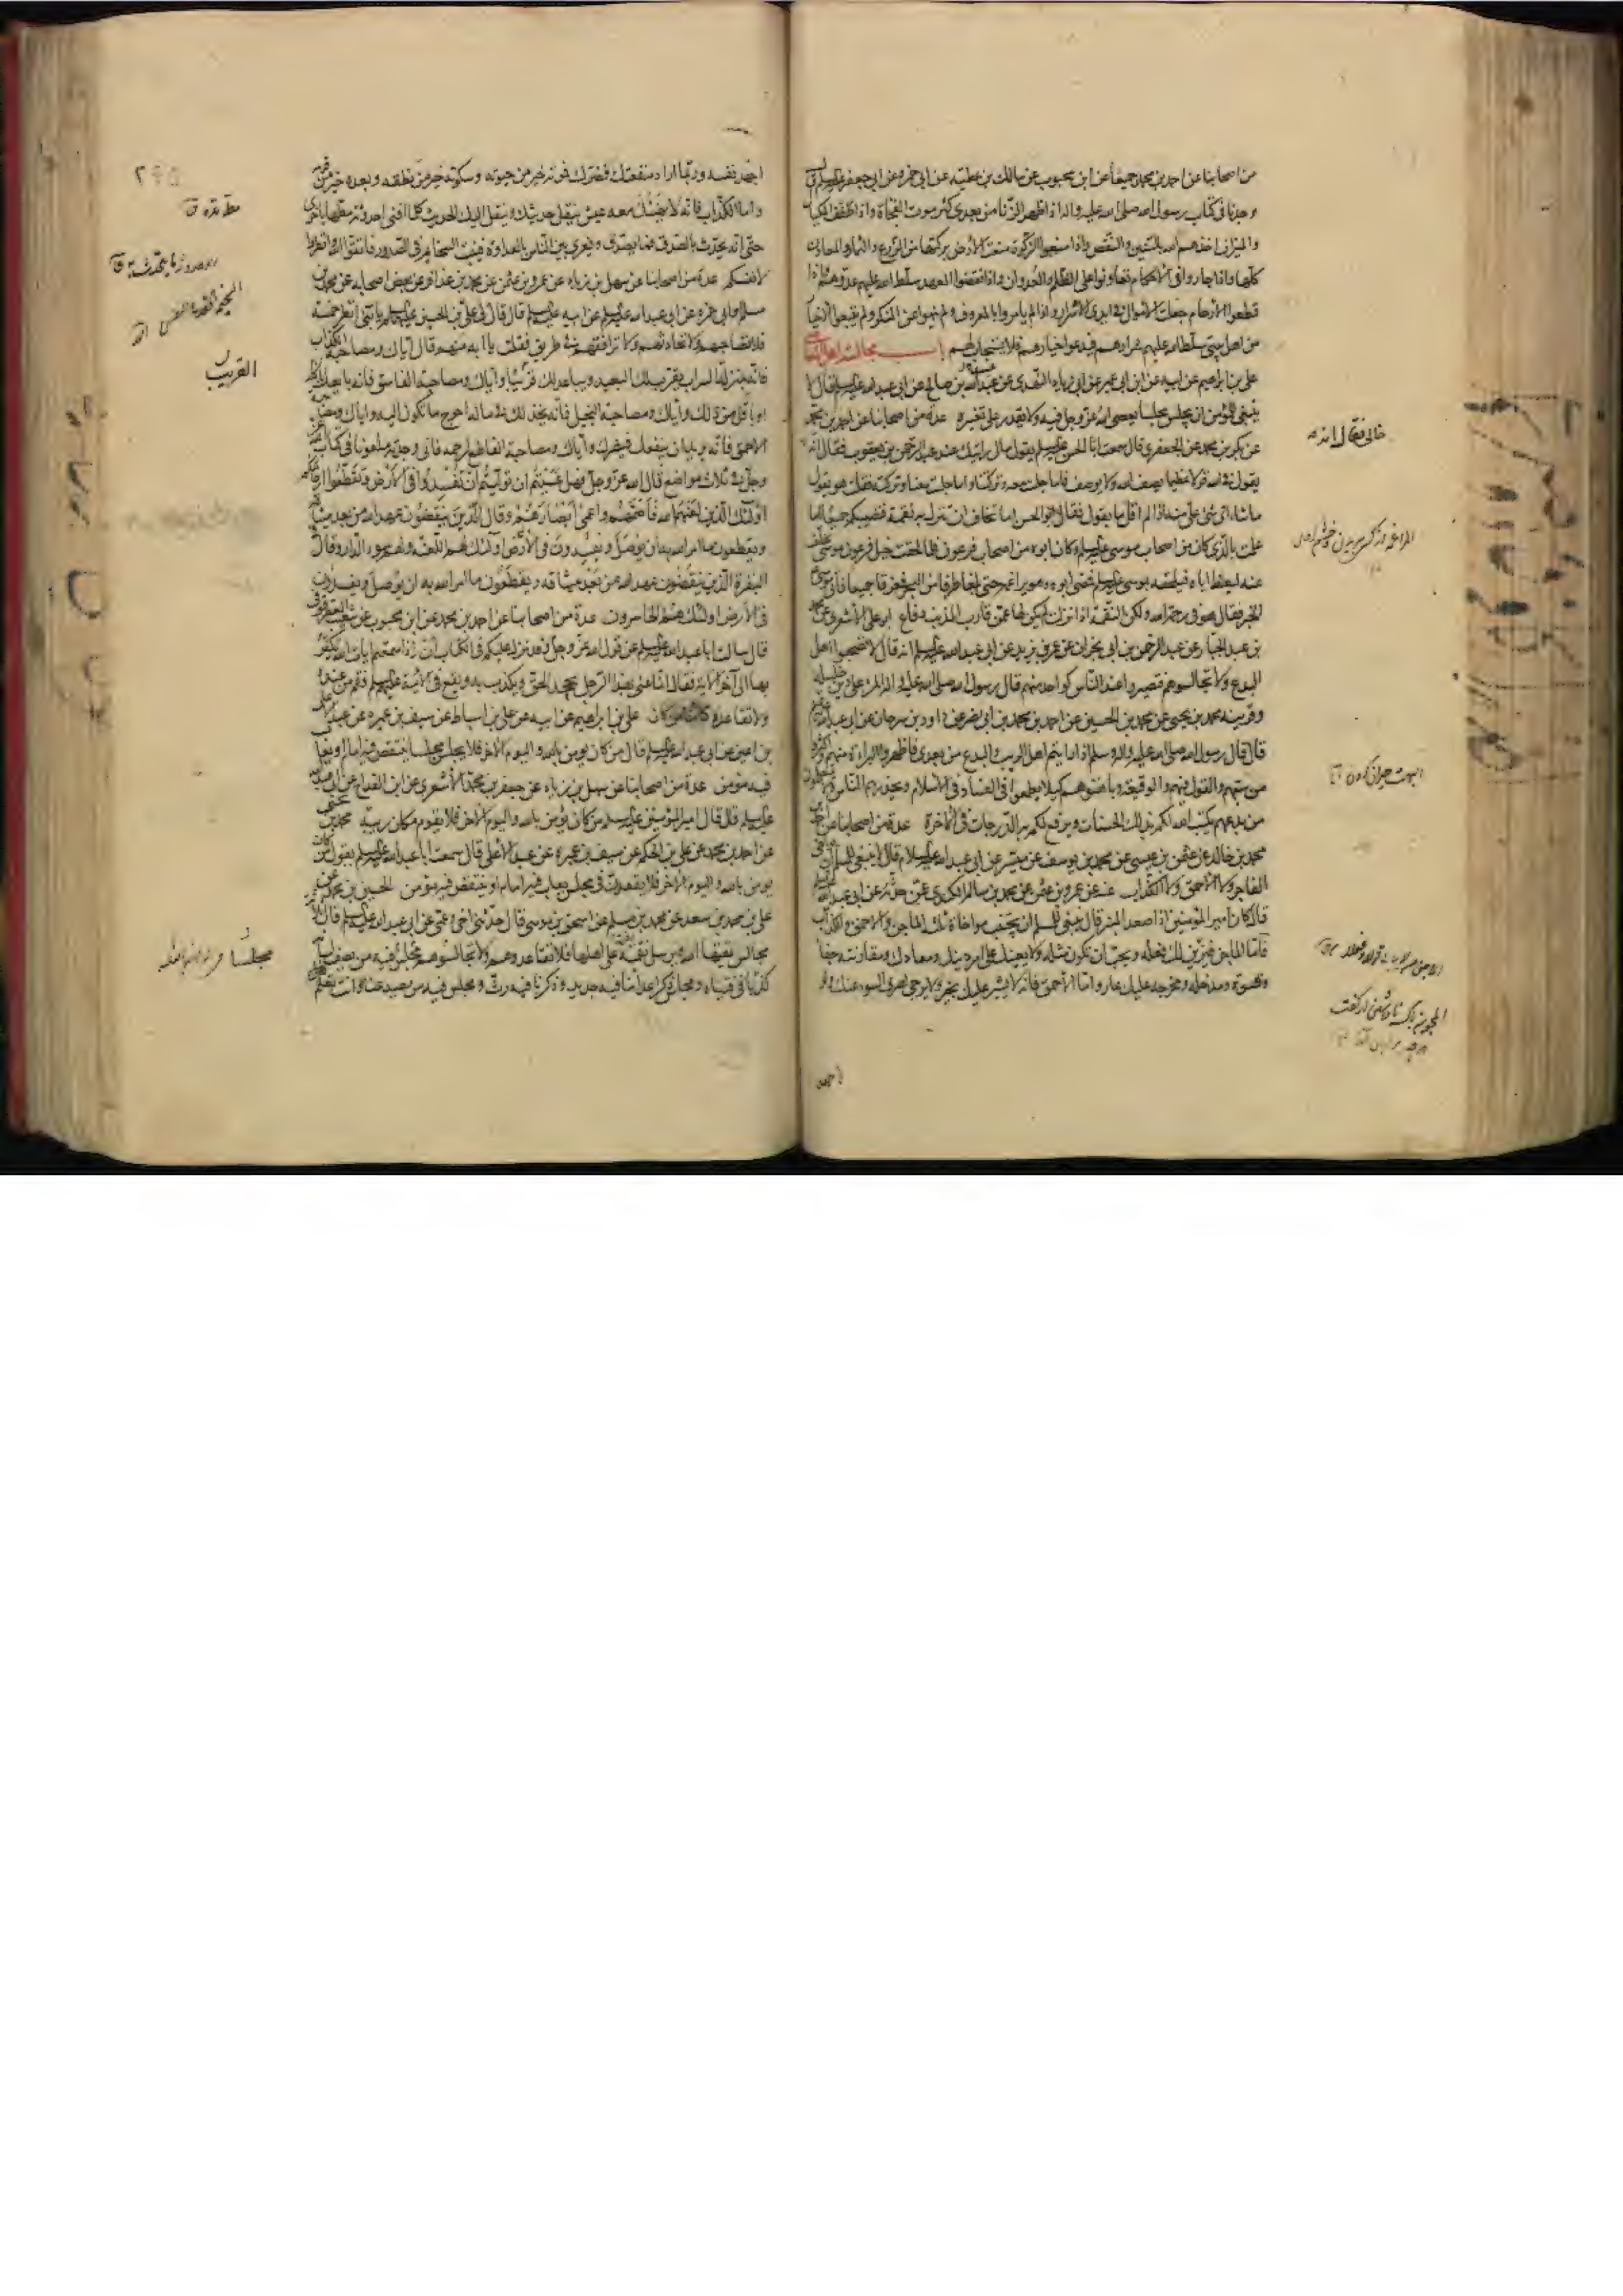 من اصحابنا عن احمد بن محمد جميعا عن ابن محبوب عن مالك بن عطيه عن ابى حمزه عن ابى جعفر عليه السلم قال
وجدنا فى كتاب رسول الله صلى الله عليه واله اذا ظهر الزنا من بعدى كثر موت الفجأة واذا طفف المكيال
والميزان اخذهم الله بالسنين والنقص واذا منعوا الزكوة منعت الارض بركتها من الزرع والثمار والمعادن
كلها واذا جاروا فى الاحكام تعاونوا على الظلم والعدوان واذا نقضوا العهد سلط الله عليهم عدوهم واذا
قطعوا الارحام جعلت الاموال فى ايدى الاشرار واذا لم يامروا بالمعروف ولم ينهوا عن المنكر ولم يتبعوا الاخيار
من اهل بيتى سلط الله عليهم شرارهم فيدعوا خيارهم فلا يستجاب لهم باب مجالسة اهل المعاصى
على بن ابراهيم عن ابيه عن ابن ابى عمير عن ابى زياد النهدى عن عبدالله بن صالح عن ابى عبد الله عليه السلم قال لا
ينبغى للمؤمن ان يجلس مجلسا يعصى الله عز وجل فيه ولا يقدر على تغييره عدة من اصحابنا عن احمد بن محمد
عن بكر بن محمد عن الجعفرى قال سمعت ابا الحسن عليه السلم يقول مالى رايتك عند عبد الرحمن بن يعقوب فقال انه
يقول فى الله قولا عظيما يصف الله ولا يوصف فاما جلست معه وتركتنا واما جلست معنا وتركته فقلت هو يقول
ما شاء اى شئ على منه اذا لم اقل ما يقول فقال ابو الحسن اما تخاف ان تنزل به نقمة فتصيبكم جميعا اما
علمت بالذى كان من اصحاب موسى عليه السلم وكان ابوه من اصحاب فرعون فلما لحقت خيل فرعون موسى تخلف
عنه ليعظ اباه فيلحقه بموسى عليه السلم فمضى ابوه وهو يراغمه حتى بلغا طرفا من البحر فغرقا جميعا فاتى موسى
الخبر فقال هو فى رحمة الله ولكن النقمة اذا نزلت لم يكن لها عمن قارب المذنب دفاع ابو على الاشعرى عن محمد
بن عبد الجبار عن عبد الرحمن بن ابى نجران عن عمر بن يزيد عن ابى عبد الله عليه السلم انه قال لا تصحبوا اهل
البدع ولا تجالسوهم فتصيروا عند الناس كواحد منهم قال رسول الله صلى الله عليه واله المرء على دين خليله
وقرينه محمد بن يحيى عن محمد بن الحسين عن احمد بن محمد بن ابى نصر عن داود بن سرحان عن ابى عبد الله عليه السلم
قال قال رسول الله صلى الله عليه واله وسلم اذا رايتم اهل الريب والبدع من بعدى فاظهروا البراءة منهم واكثروا
من سبهم والقول فيهم والوقيعة وباهتوهم كيلا يطمعوا فى الفساد فى الاسلام ويحذرهم الناس ولا يتعلمون
من بدعهم يكتب الله لكم بذلك الحسنات ويرفع لكم به الدرجات فى الاخرة عدة من اصحابنا عن احمد بن
محمد بن خالد عن عثمن بن عيسى عن محمد بن يوسف عن ميسر عن ابى عبد الله عليه السلام قال لا ينبغى للمسلم ان يواخى
الفاجر ولا الاحمق ولا الكذاب عنه عن عمرو بن عثمن عن محمد بن سالم الكندى عمن حدثه عن ابى عبد الله عليه السلم
قال كان امير المؤمنين اذا صعد المنبر قال ينبغى للمسلم ان يجتنب مواخاة ثلثة الماجن والاحمق والكذاب
فاما الماجن فيزين لك فعله ويحب ان تكون مثله ولا يعينك على امر دينك ومعادك ومقارنته جفا
وقسوة ومدخله ومخرجه عليك عار واما الاحمق فانه لا يشير عليك بخير ولا يرجى لصرف السوء عنك ولو
اجهد
اجهد نفسه وربما اراد منفعتك فضرك فموته خير من حيوته وسكوته خير من نطقه وبعده خير من قربه
واما الكذاب فانه لا يهنئك معه عيش ينقل حديثك وينقل اليك الحديث كلما افنى احدوثة مطها باخرى
حتى انه يحدث بالصدق فما يصدق ويغرى بين الناس بالعداوة فينبت السخائم فى الصدور فاتقوا الله وانظروا
لانفسكم عدة من اصحابنا عن سهل بن زياد عن عمرو بن عثمن عن محمد بن عذافر عن بعض اصحابه عن محمد بن
مسلم وابى حمزه عن ابى عبد الله عليه السلم عن ابيه عليه السلم قال قال لى على بن الحسين عليه السلم يا بنى انظر خمسة
فلا تصاحبهم ولا تحادثهم ولا ترافقهم فى طريق فقلت يا ابه من هم قال اياك ومصاحبة الكذاب
فانه بمنزلة السراب يقرب لك البعيد ويباعد لك قريبا واياك ومصاحبة الفاسق فانه بايعك باكلة
او باقل من ذلك واياك ومصاحبة البخيل فانه يخذلك فى ماله احوج ما تكون اليه واياك ومصاحبة
الاحمق فانه يريد ان ينفعك فيضرك واياك ومصاحبة القاطع لرحمه فانى وجدته ملعونا فى كتاب الله عز
وجل فى ثلاث مواضع قال الله عز وجل فهل عسيتم ان توليتم ان تفسدوا فى الارض وتقطعوا ارحامكم
اولئك الذين لعنهم الله فاصمهم واعمى ابصارهم وقال الذين ينقضون عهد الله من بعد ميثاقه
ويقطعون ما امر الله به ان يوصل ويفسدون فى الارض اولئك لهم اللعنة ولهم سوء الدار وقال فى
البقرة الذين ينقضون عهد الله من بعد ميثاقه ويقطعون ما امر الله به ان يوصل ويفسدون
فى الارض اولئك هم الخاسرون عدة من اصحابنا عن احمد بن محمد عن ابن محبوب عن شعيب العقرقوفى
قال سالت ابا عبد الله عليه السلم عن قول الله عز وجل وقد نزل عليكم فى الكتاب ان اذا سمعتم ايات الله يكفر
بها الى آخر الاية فقال انما عنى بهذا الرجل يجحد الحق ويكذب به ويقع فى الائمة عليهم السلم فقم من عنده
ولا تقاعده كائنا من كان على بن ابراهيم عن ابيه عن على بن اسباط عن سيف بن عميره عن عبد الاعلى
بن اعين عن ابى عبد الله عليه السلم قال من كان يومن بالله واليوم الاخر فلا يجلس مجلسا ينتقص فيه امام او يعاب
فيه مؤمن عدة من اصحابنا عن سهل بن زياد عن جعفر بن محمد الاشعرى عن ابن القداح عن ابى عبد الله
عليه السلم قال قال امير المؤمنين عليه السلم من كان يؤمن بالله واليوم الاخر فلا يقوم مكان ريبة محمد بن يحيى
عن احمد بن محمد عن على بن الحكم عن سيف بن عميرة عن عبد الاعلى قال سمعت ابا عبد الله عليه السلم يقول من كان
يومن بالله واليوم الاخر فلا يقعدن فى مجلس يعاب فيه امام او ينتقص فيه مؤمن الحسين بن محمد عن
على بن محمد بن سعد عن محمد بن مسلم عن اسحق بن موسى قال حدثنى اخى وعمى عن ابى عبد الله عليه السلم قال ثلثة
مجالس يمقتها الله ويرسل نقمته على اهلها فلا تقاعدوهم ولا تجالسوهم مجلس فيه من يصف لسانه
كذبا فى فتياه ومجلس ذكر اعدائنا فيه جديد وذكرنا فيه رث ومجلس فيه من يصد عنا وانت تعلم
القريب
مجلسا